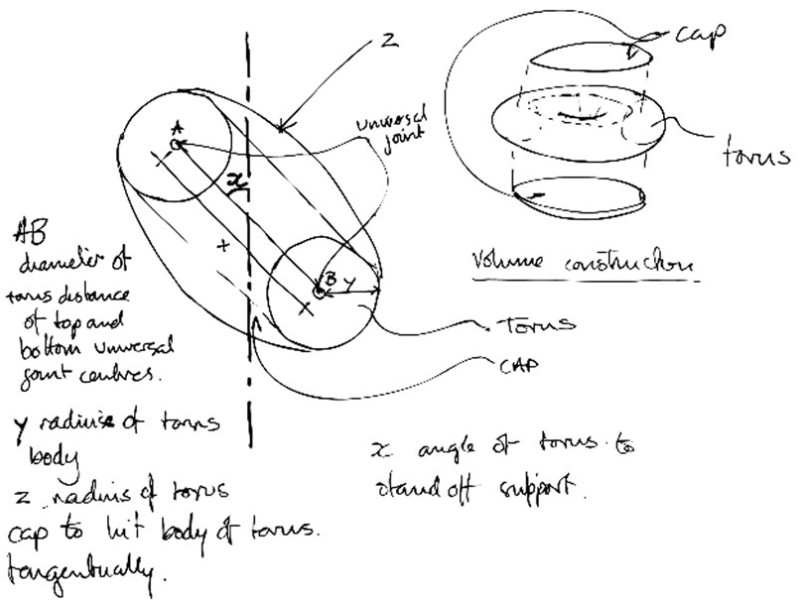 cap
Z
universal
joint
torus
A
x
AB
diameter of
torus distance
of top and
bottom universal
joint centres.
B
Y
Volume construction
Torus
CAP
y radius of torus
body
x angle of torus to
stand off support.
z radius of torus
cap to hit body of torus.
tangentually.